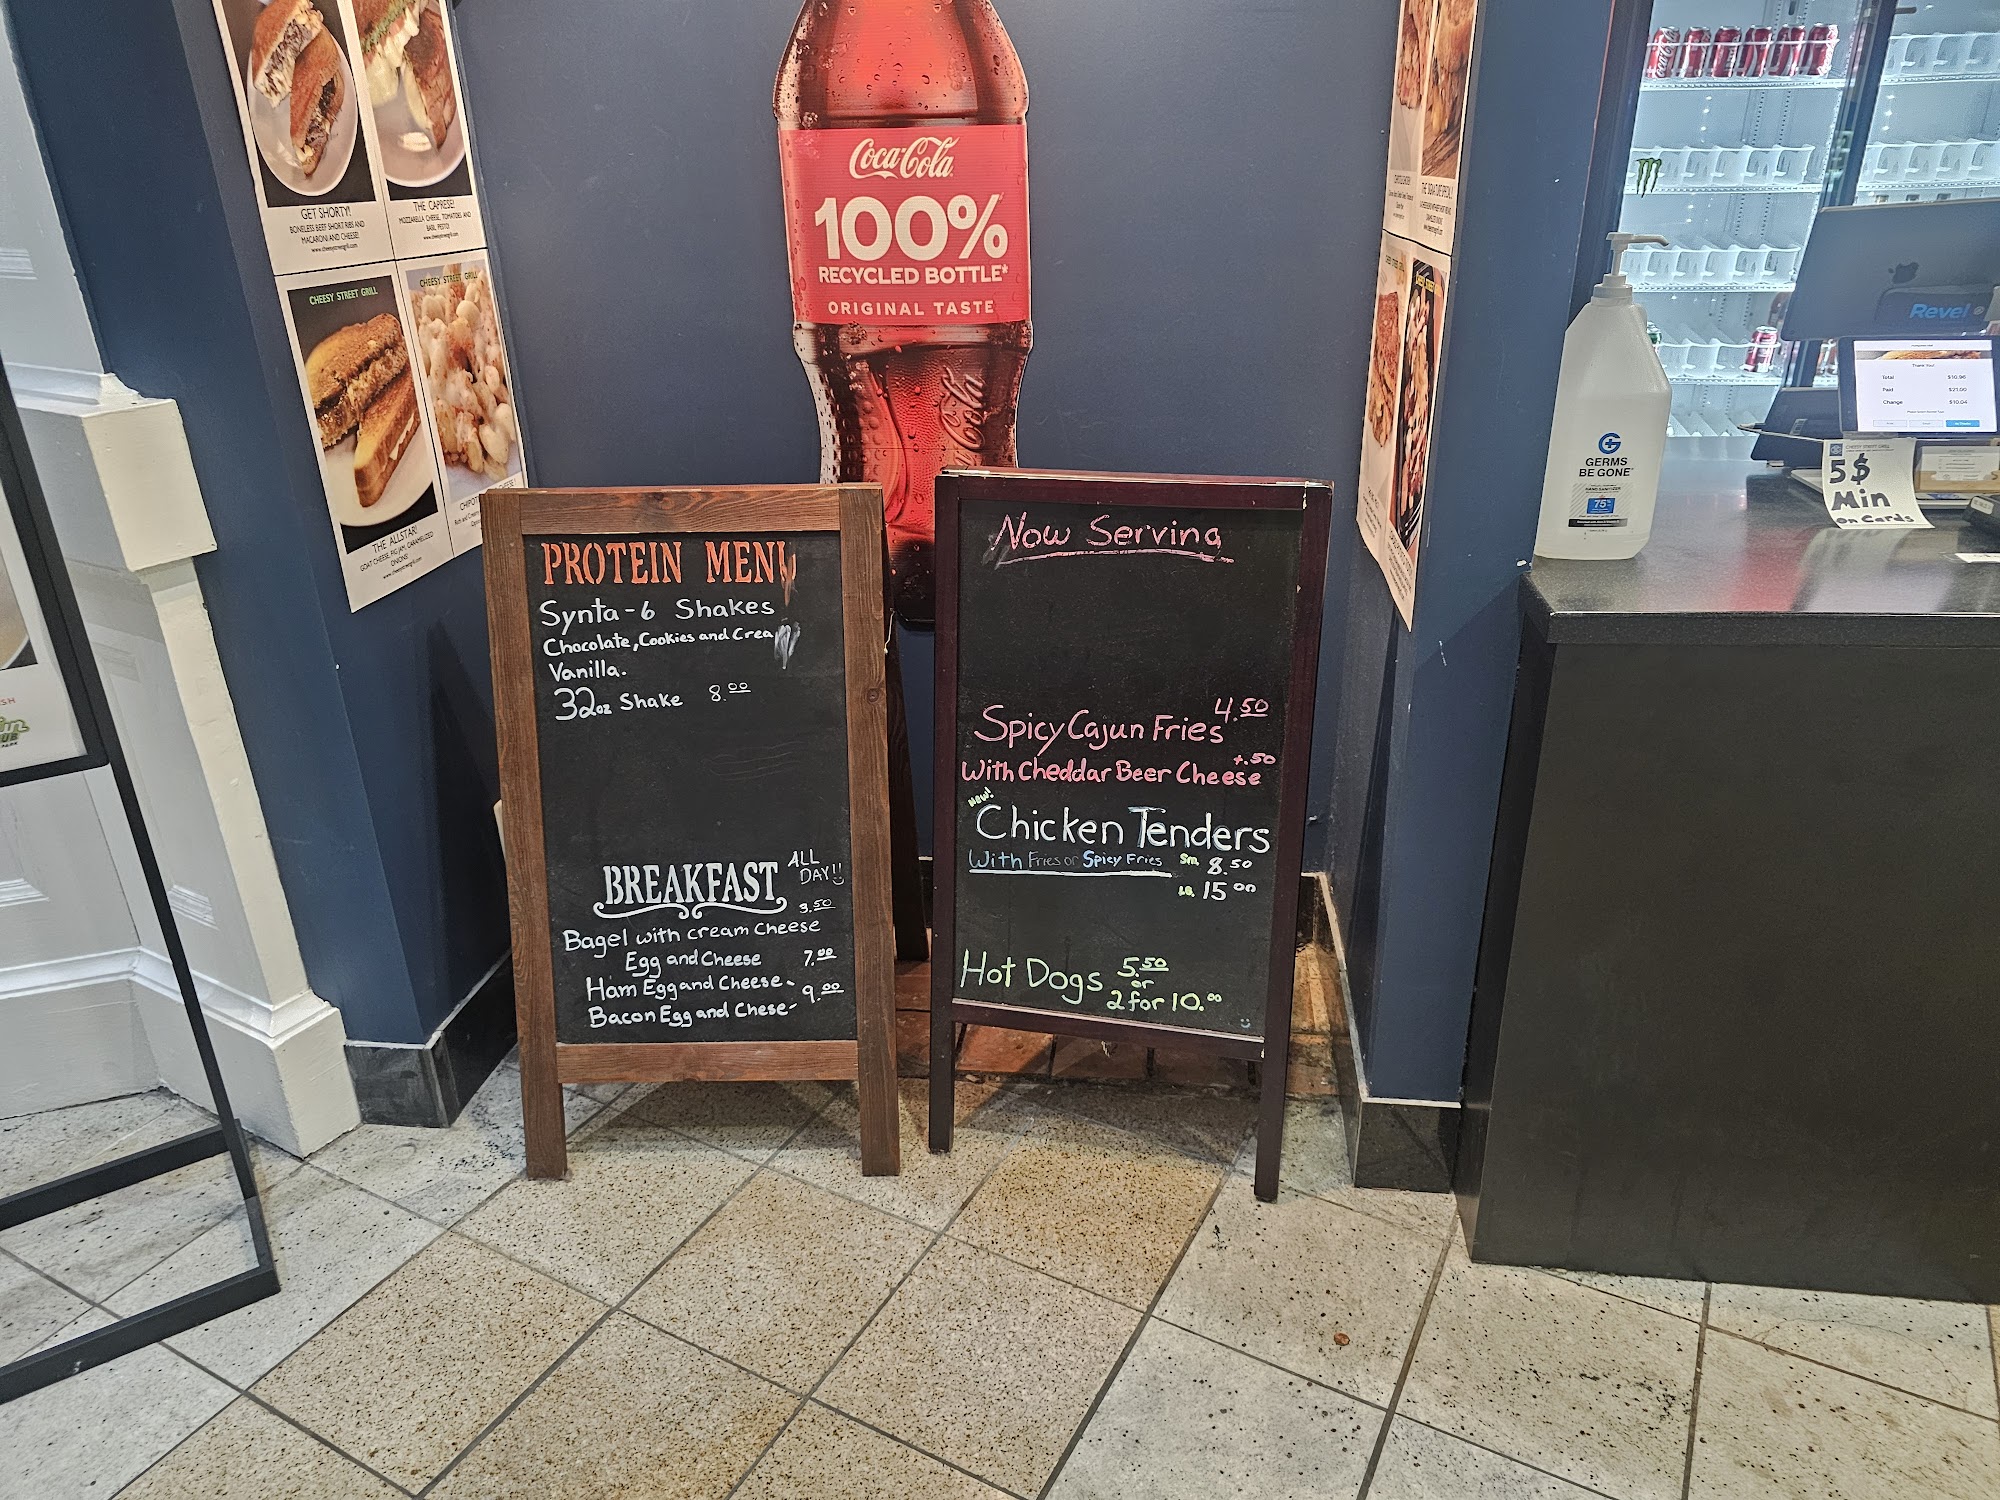 GET SHORTY!
BONELESS BEEF SHORT RIBS AND
MACARONI AND CHEESE!
www.cheesystreetgrill.com
THE CAPRESE!
MOZZARELLA CHEESE, TOMATOES AND
BASIL PESTO!
www.cheesystreetgrill.com
CHEESY STREET GRILL
THE ALLSTAR!
GOAT CHEESE, FIG JAM, CARAMELIZED
ONIONS!
www.cheesystreetgrill.com
CHEESY STREET GRILL
Coca-Cola
100%
RECYCLED BOTTLE*
ORIGINAL TASTE
Coca-Cola
PROTEIN MENU
Synta-6 Shakes
Chocolate, Cookies and Crea
Vanilla.
32oz Shake 8.00
BREAKFAST ALL
DAY!!
3.50
Bagel with cream cheese
Egg and Cheese 7.00
Ham Egg and Cheese-
9.00
Bacon Egg and Chese-
Now Serving
4.50
Spicy Cajun Fries
+.50
With Cheddar Beer Cheese
New!
Chicken Tenders
With Fries or Spicy Fries Sm. 8.50
LG. 15 00
Hot Dogs 5.50
or
2 for 10.00
GERMS
BE GONE
HAND SANITIZER
75%
Revel
Thank You!
Total $10.96
Paid $21.00
Change $10.04
5$
Min
on Cards